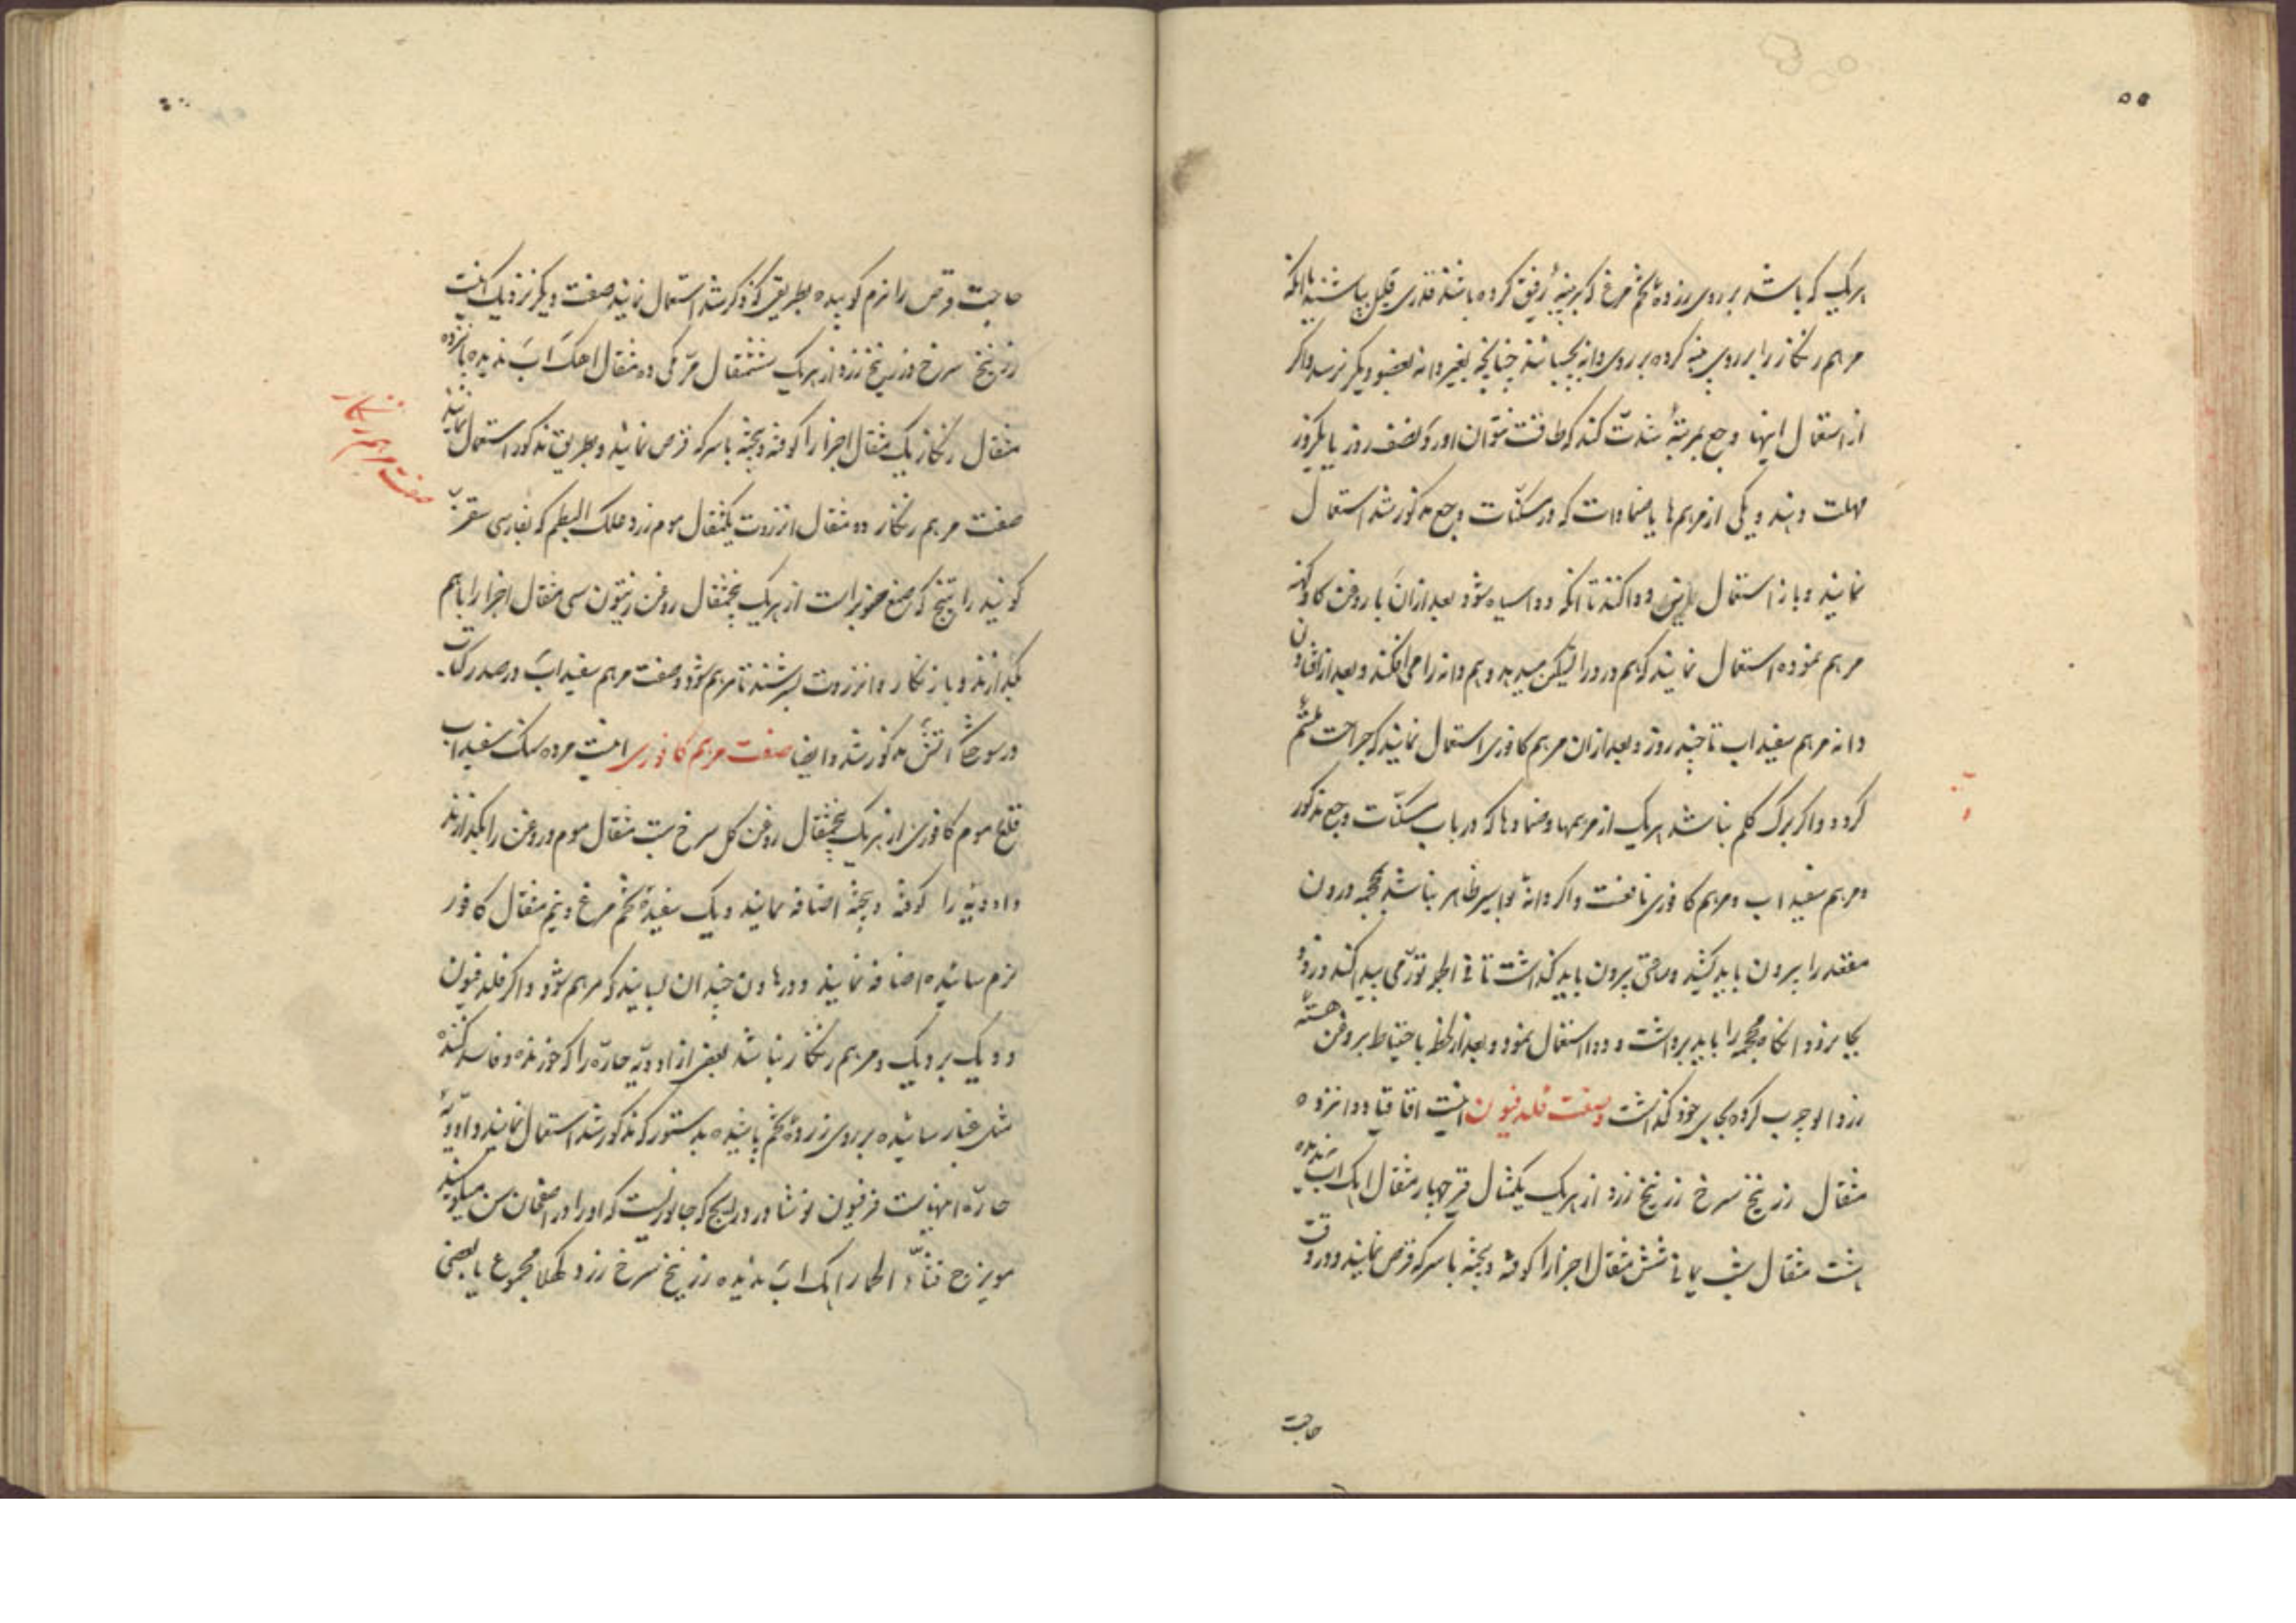 ۵۵
هریک که باشد بر روی زرده تخم مرغ که بر پنبه رقیق کرده باشند قدری قلیل بپاشند یا آنکه
مرهم زنکار را بر روی پنبه کرده بر روی دانه بچسبانند چنانچه بغیر دانه بعضو دیکر نرسد و اکر
از استعمال اینها وجع بمرتبهٔ شدّت کند که طاقت نتوان آورد نصف روز یا یکروز
مهلت دهند و یکی از مرهم‌ها یا ضمادات که در مسکّنات وجع مذکور شد استعمال
نمایند و باز استعمال این دوا کنند تا آنکه دوا سیاه شود بعد از ان با روغن کاو کهنه
مرهم نموده استعمال نمایند که هم درد را تسکین میدهد و هم دانه را می‌افکند و بعد از افتادن
دانه مرهم سفیداب تا چند روز و بعد از ان مرهم کافوری استعمال نمایند که جراحت ملتئم
کردد و اکر برک کلم نباشد هریک از مرهمها و ضمادها که در باب مسکّنات وجع مذکور
و مرهم سفیداب و مرهم کافوری نافعست و اکر دانهٔ بواسیر ظاهر نباشد محجمه درون
مقعد را بیرون باید کشید و ساعتی بیرون باید کذاشت تا فی الجمله تورّمی پیدا کند و زود
بجا نرود انکاه محجمه را باید برداشت و دوا استعمال نمود و بعد از لحظه باحتیاط بروغن هستهٔ
زردالو چرب کرده بجای خود کذاشت و صفت فلدفیون اینست اقاقیا دوانزده
مثقال زرنیخ سرخ زرنیخ زرد از هریک یکمثقال قیر چهار مثقال اهک آب ندیده
هشت مثقال شب یمانی شش مثقال اجزا را کوفته و بیخته با سرکه قرص نمایند و در وقت
حاجت
حاجت قرص را نرم کوبیده بطریقی که ذکر شد استعمال نمایند صفت دیکر نزدیک اینست
زرنیخ سرخ و زرنیخ زرد از هریک ششمثقال مرّ مکی ده مثقال اهک آب ندیده پانزده
مثقال زنکار یک مثقال اجزا را کوفته و بیخته با سرکه قرص نمایند و بطریق مذکور استعمال نمایند
صفت مرهم زنکار
صفت مرهم زنکار ده مثقال انزروت یکمثقال موم زرد علک البطم که بفارسی سقز
کویند راتینج که صمغ صنوبر است از هریک پنجمثقال روغن زیتون سی مثقال اجزا را باهم
بکدازند و باز زنکار و انزروت بسرشند تا مرهم شود و صفت مرهم سفیداب در صدر کتاب
در سوختکی آتش مذکور شد و ایضا صفت مرهم کافوری اینست مرده سنک سفیداب
قلع موم کافوری از هریک پنجمثقال روغن کل سرخ بیست مثقال موم و روغن را بکدازند
و ادویه را کوفته و بیخته اضافه نمایند و یک سفیدهٔ تخم مرغ و نیم مثقال کافور
نرم ساییده اضافه نمایند و در هاون چندان بسایند که مرهم شود و اکر فلدفیون
و دیک بر دیک و مرهم زنکار نباشد بعضی از ادویهٔ حارّه را که خورنده و فاسد کننده
مثل غبار ساییده بر روی زردهٔ تخم پاشیده بدستور که مذکور شد استعمال نمایند و ادویهٔ
حارّه اینهاست فرفیون نوشادر ذراریح که جانوریست که او را در اصفهان سن میکویند
مویزج قثاء الحمار اهک آب ندیده زرنیخ سرخ زرد کهلا مجموع یا بعضی